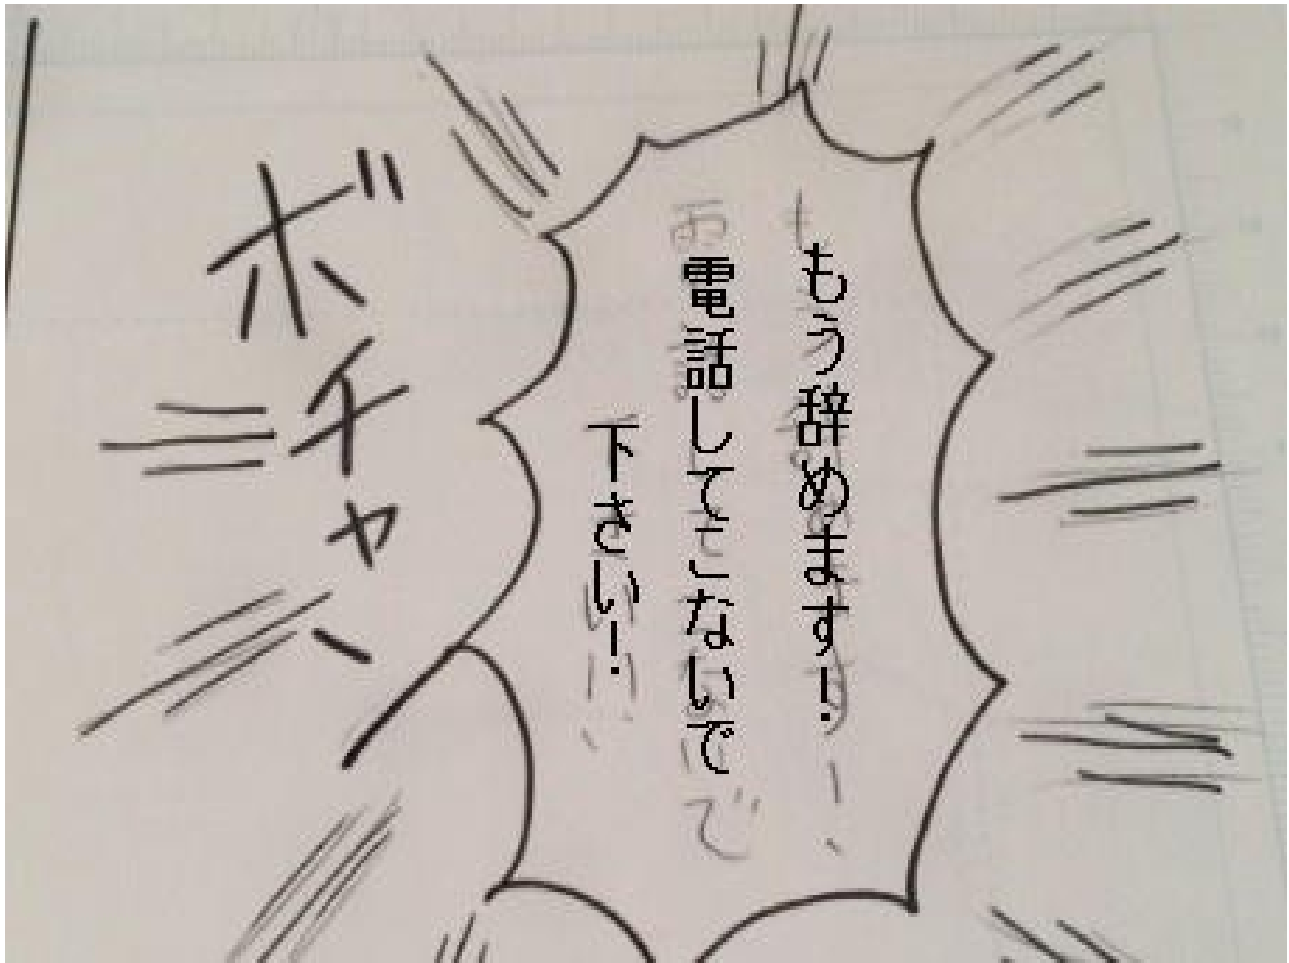 もう辞めます!
電話してこないで
下さい!
ボチャン